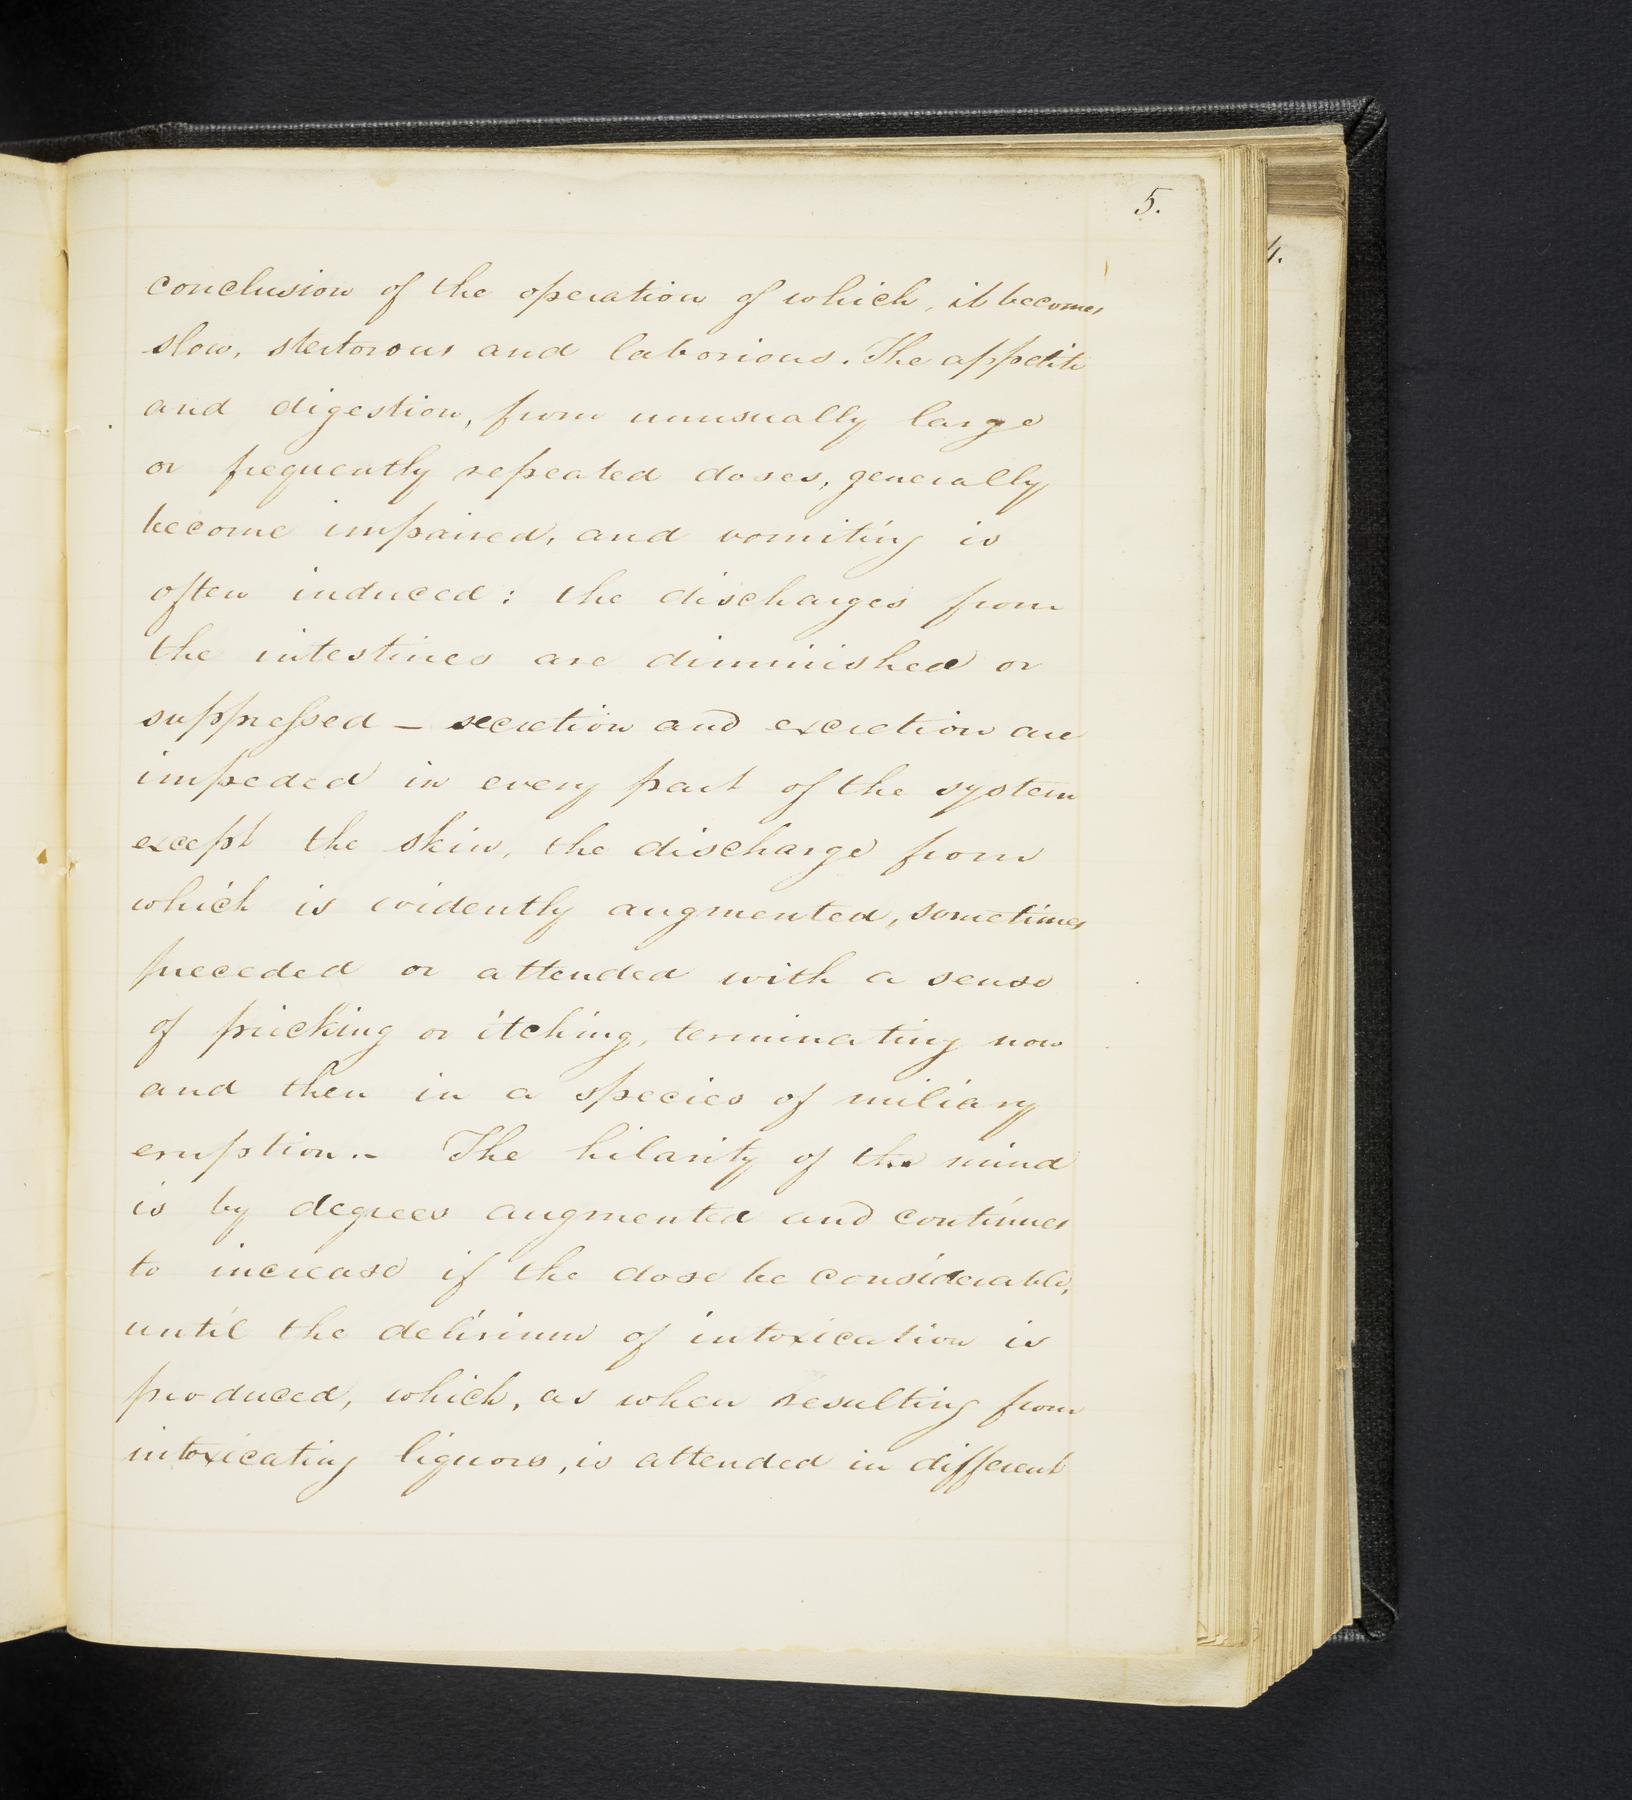 5.
4.
conclusion of the operation of which, it becomes
slow, stertorous and laborious. The appetite
and digestion, from unusually large
or frequently repeated doses, generally
become impaired, and vomiting is
often induced: the discharges from
the intestines are diminished or
suppressed — secretion and excretion are
impeded in every part of the system
except the skin, the discharge from
which is evidently augmented, sometimes
preceded or attended with a sense
of pricking or itching, terminating now
and then in a species of miliary
eruption.- The hilarity of the mind
is by degrees augmented and continues
to increase if the dose be considerable,
until the delirium of intoxication is
produced, which, as when resulting from
intoxicating liquors, is attended in different